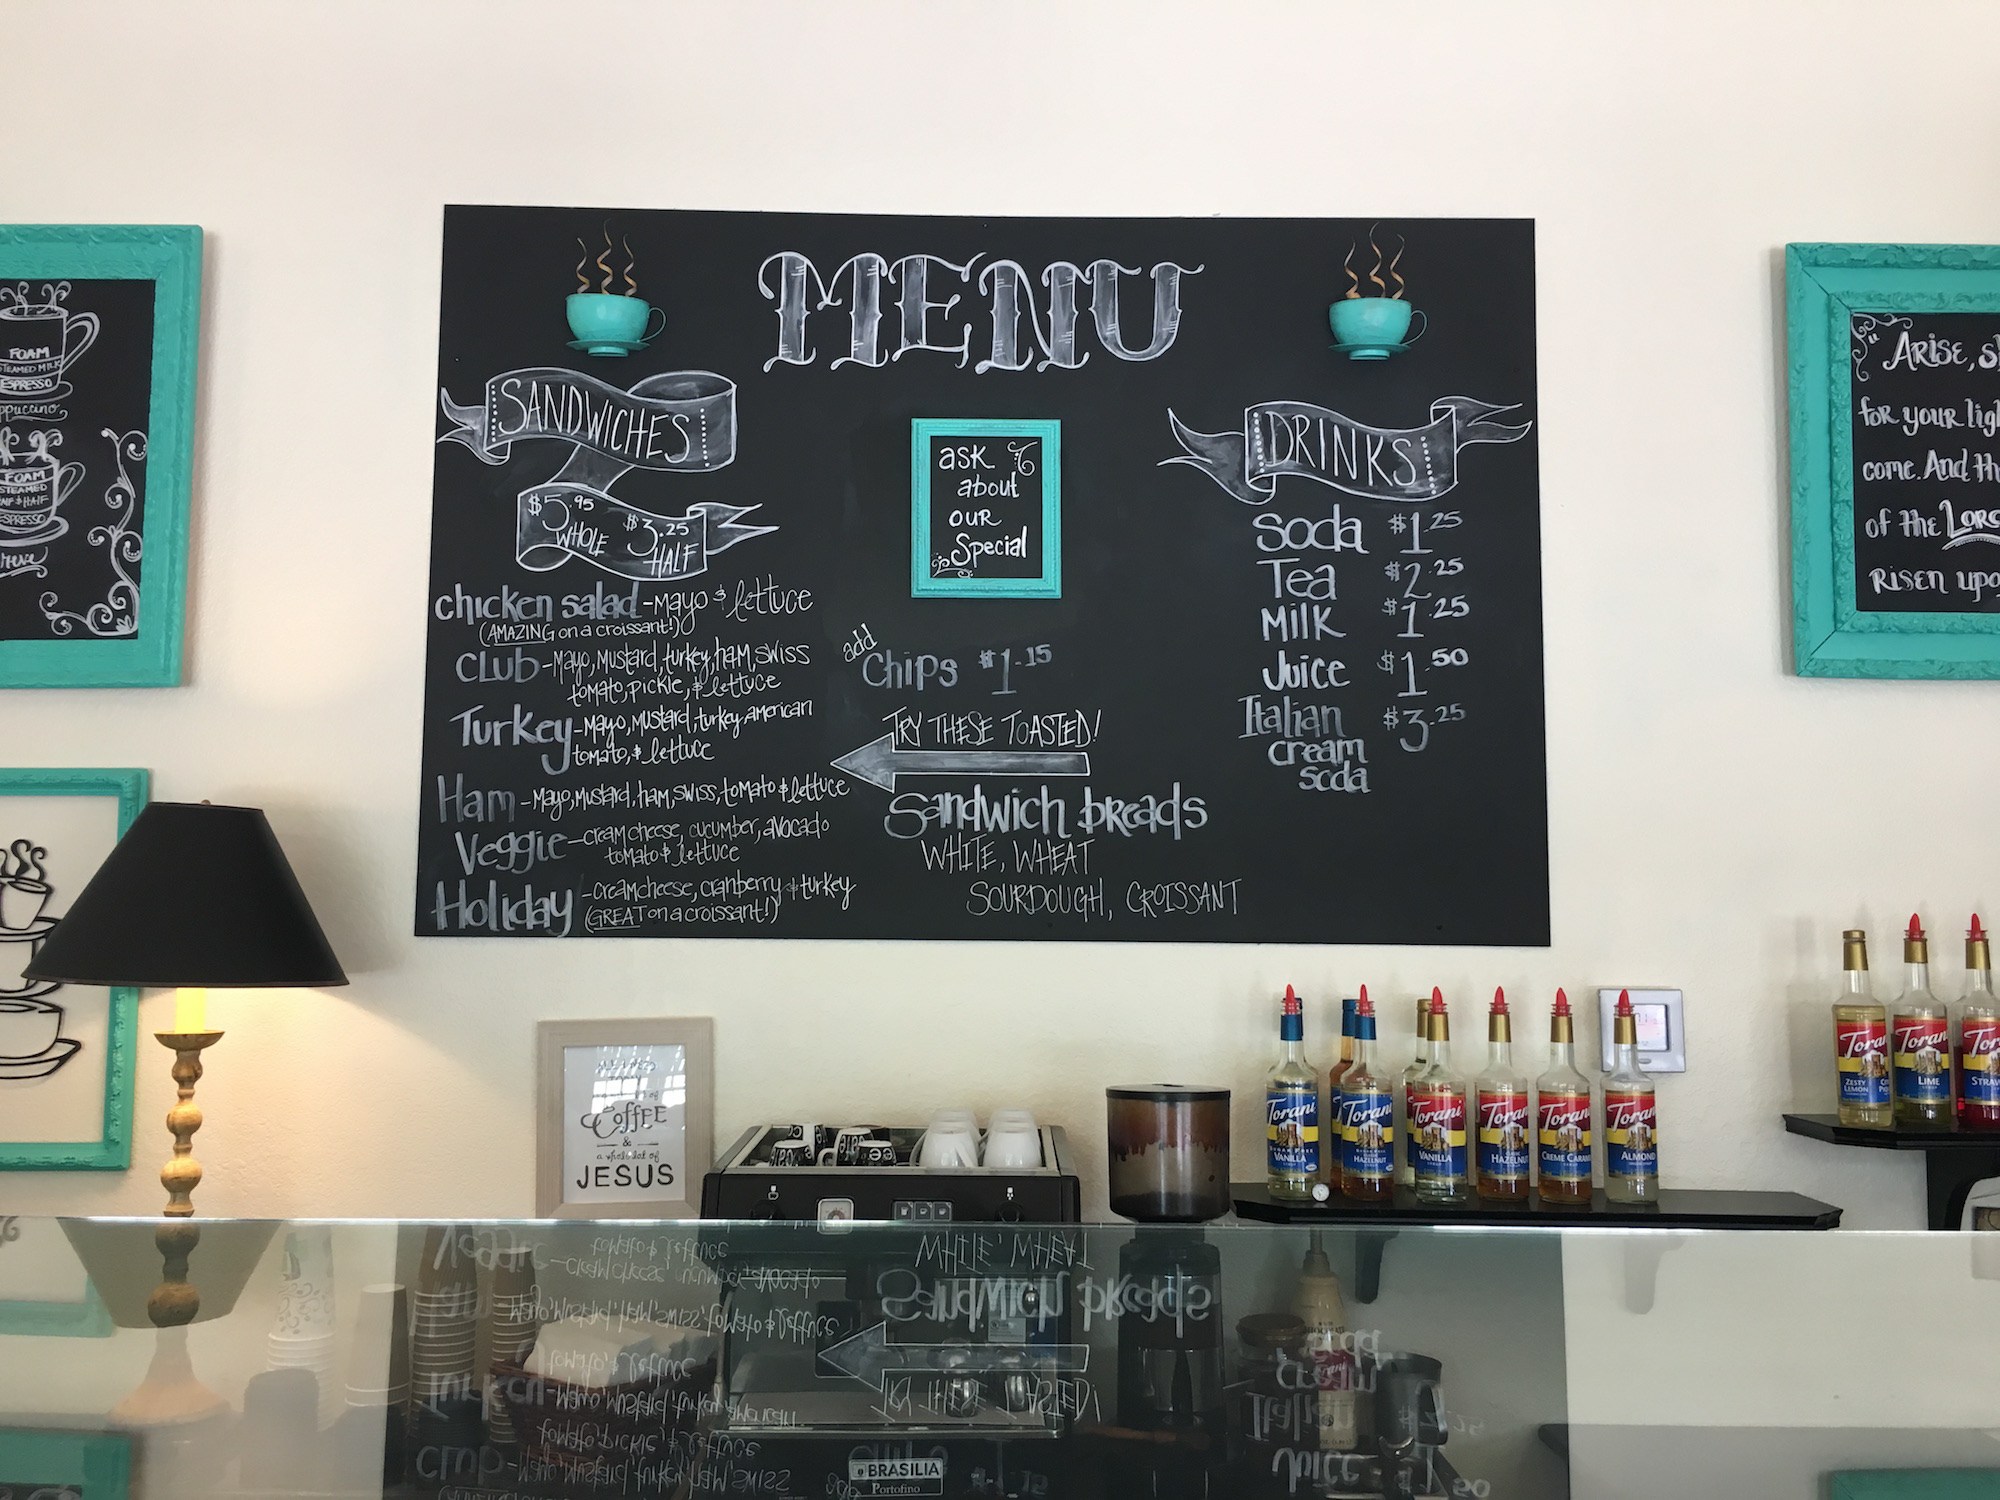 MENU
SANDWICHES
$5.95 WHOLE $3.25 HALF
chicken salad-mayo & lettuce
(AMAZING on a croissant!)
CLUB-Mayo, Mustard, turkey, ham, swiss
tomato, pickle, & lettuce
Turkey-Mayo, Mustard, turkey, american
tomato, & lettuce
Ham-Mayo, Mustard, ham, swiss, tomato & lettuce
Veggie-cream cheese, cucumber, avocado
tomato & lettuce
Holiday-cream cheese, cranberry & turkey
(GREAT on a croissant!)
ask
about
our
Special
add
Chips $1.15
TRY THESE TOASTED!
Sandwich breads
WHITE, WHEAT
SOURDOUGH, CROISSANT
DRINKS
Soda $1.25
Tea $2.25
Milk $1.25
Juice $1.50
Italian $3.25
cream
soda
FOAM
STEAMED MILK
ESPRESSO
FOAM
STEAMED
ESPRESSO
ARISE,
for your
come. And
of the LORD
RISEN
of
COFFEE
&
a whole lot of
JESUS
Torani
VANILLA
Torani
HAZELNUT
Torani
VANILLA
Torani
HAZELNUT
Torani
CREME
Torani
ALMOND
Torani
ZESTY
LEMON
Torani
LIME
BRASILIA
Portofino